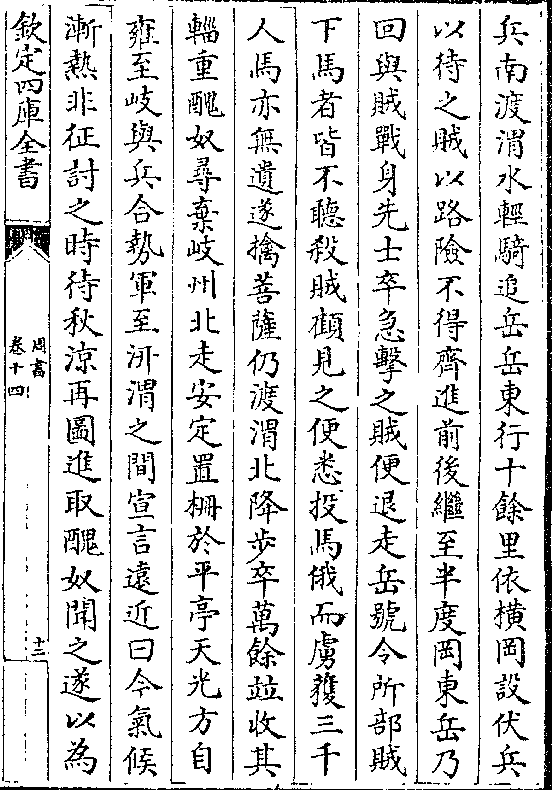 兵南渡渭水輕騎追岳岳東行十餘里依横岡設伏兵
以待之賊以路險不得齊進前後繼至半度岡東岳乃
回與賊戰身先士卒急擊之賊便退走岳號令所部賊
下馬者皆不聽殺賊顧見之便悉投馬俄而虜獲三千
人馬亦無遺遂擒菩薩仍渡渭北降步卒萬餘竝收其
輜重醜奴尋棄岐州北走安定置柵於平亭天光方自
雍至岐與兵合勢軍至汧渭之間宣言遠近曰今氣候
漸熱非征討之時待秋涼再圖進取醜奴聞之遂以為
欽定四庫全書
周書
卷十四
十三